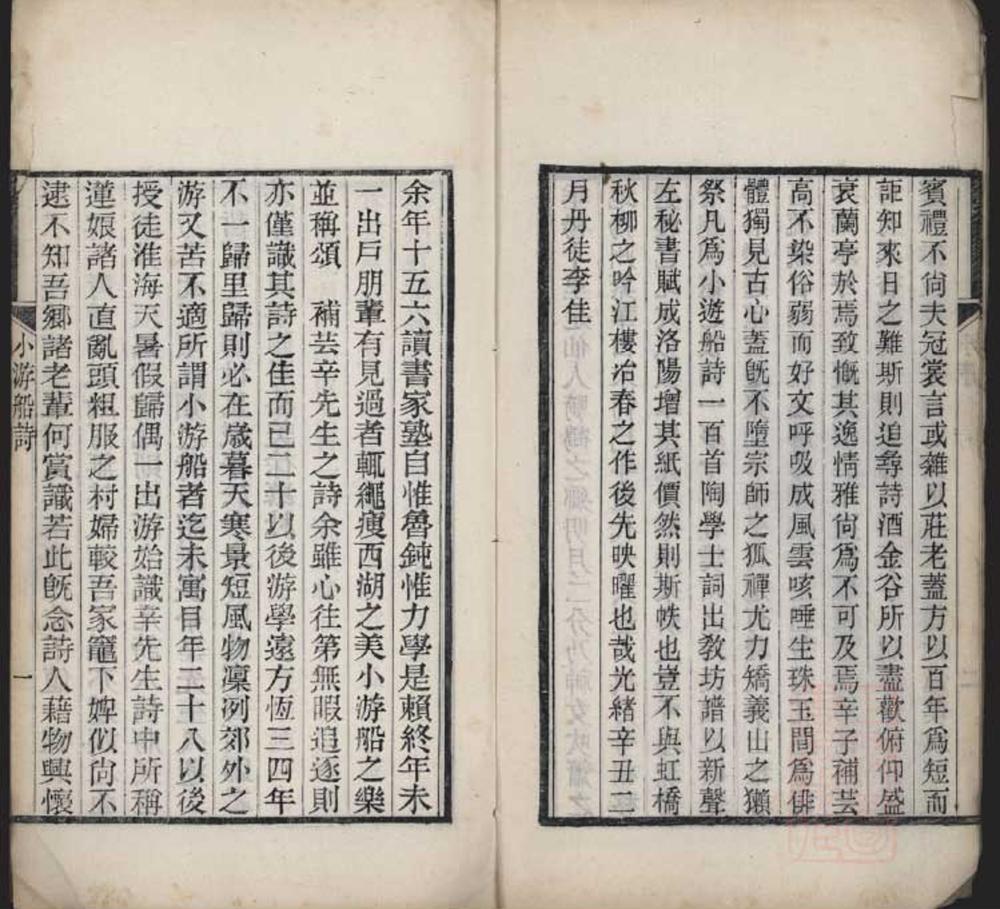 賓禮不尙夫冠裳言或雜以莊老蓋方以百年爲短而
詎知來日之難斯則追尋詩酒金谷所以盡歡俯仰盛
衰蘭亭於焉致慨其逸情雅尙爲不可及焉辛子補芸
高不染俗弱而好文呼吸成風雲咳唾生珠玉間爲俳
體獨見古心蓋旣不墮宗師之狐禪尤力矯義山之獺
祭凡爲小遊船詩一百首陶學士詞出敎坊譜以新聲
左秘書賦成洛陽增其紙價然則斯帙也豈不與虹橋
秋柳之吟江樓冶春之作後先映曜也哉光緒辛丑二
月丹徒李佳
余年十五六讀書家塾自惟魯鈍惟力學是賴終年未
一出戶朋輩有見過者輒繩瘦西湖之美小游船之樂
並稱頌　補芸辛先生之詩余雖心往第無暇追逐則
亦僅識其詩之佳而已二十以後游學遠方恆三四年
不一歸里歸則必在歲暮天寒景短風物凜冽郊外之
游又苦不適所謂小游船者迄未寓目年二十八以後
授徒淮海天暑假歸偶一出游始識辛先生詩中所稱
蓮娘諸人直亂頭粗服之村婦較吾家竈下婢似尙不
逮不知吾鄉諸老輩何賞識若此旣念詩人藉物興懷
小游船詩
一